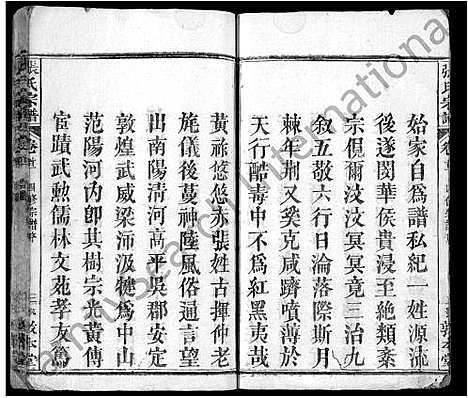 始家自爲譜私紀一姓源流
後遂閔華侯貴浸王絶類棄
宗侣爾汶汶冥冥竟三治九
叙五敬六行日淪落際斯月
棘年荆天矣克咸躋噴薄於
天行哉不爲紅黑夷哉
黄祢悠悠亦張姓古揮仲老
旄儀後蔓神陸風俗通言望
出南陽清河高平吳郡安定
敦煌武威梁沛汲犍爲中山
范陽河内即其樹宗光黄傳
宦蹟武勲儒林文苑孝友爲
張氏宗譜
卷首
敦本堂
張氏宗譜
amilySearch International